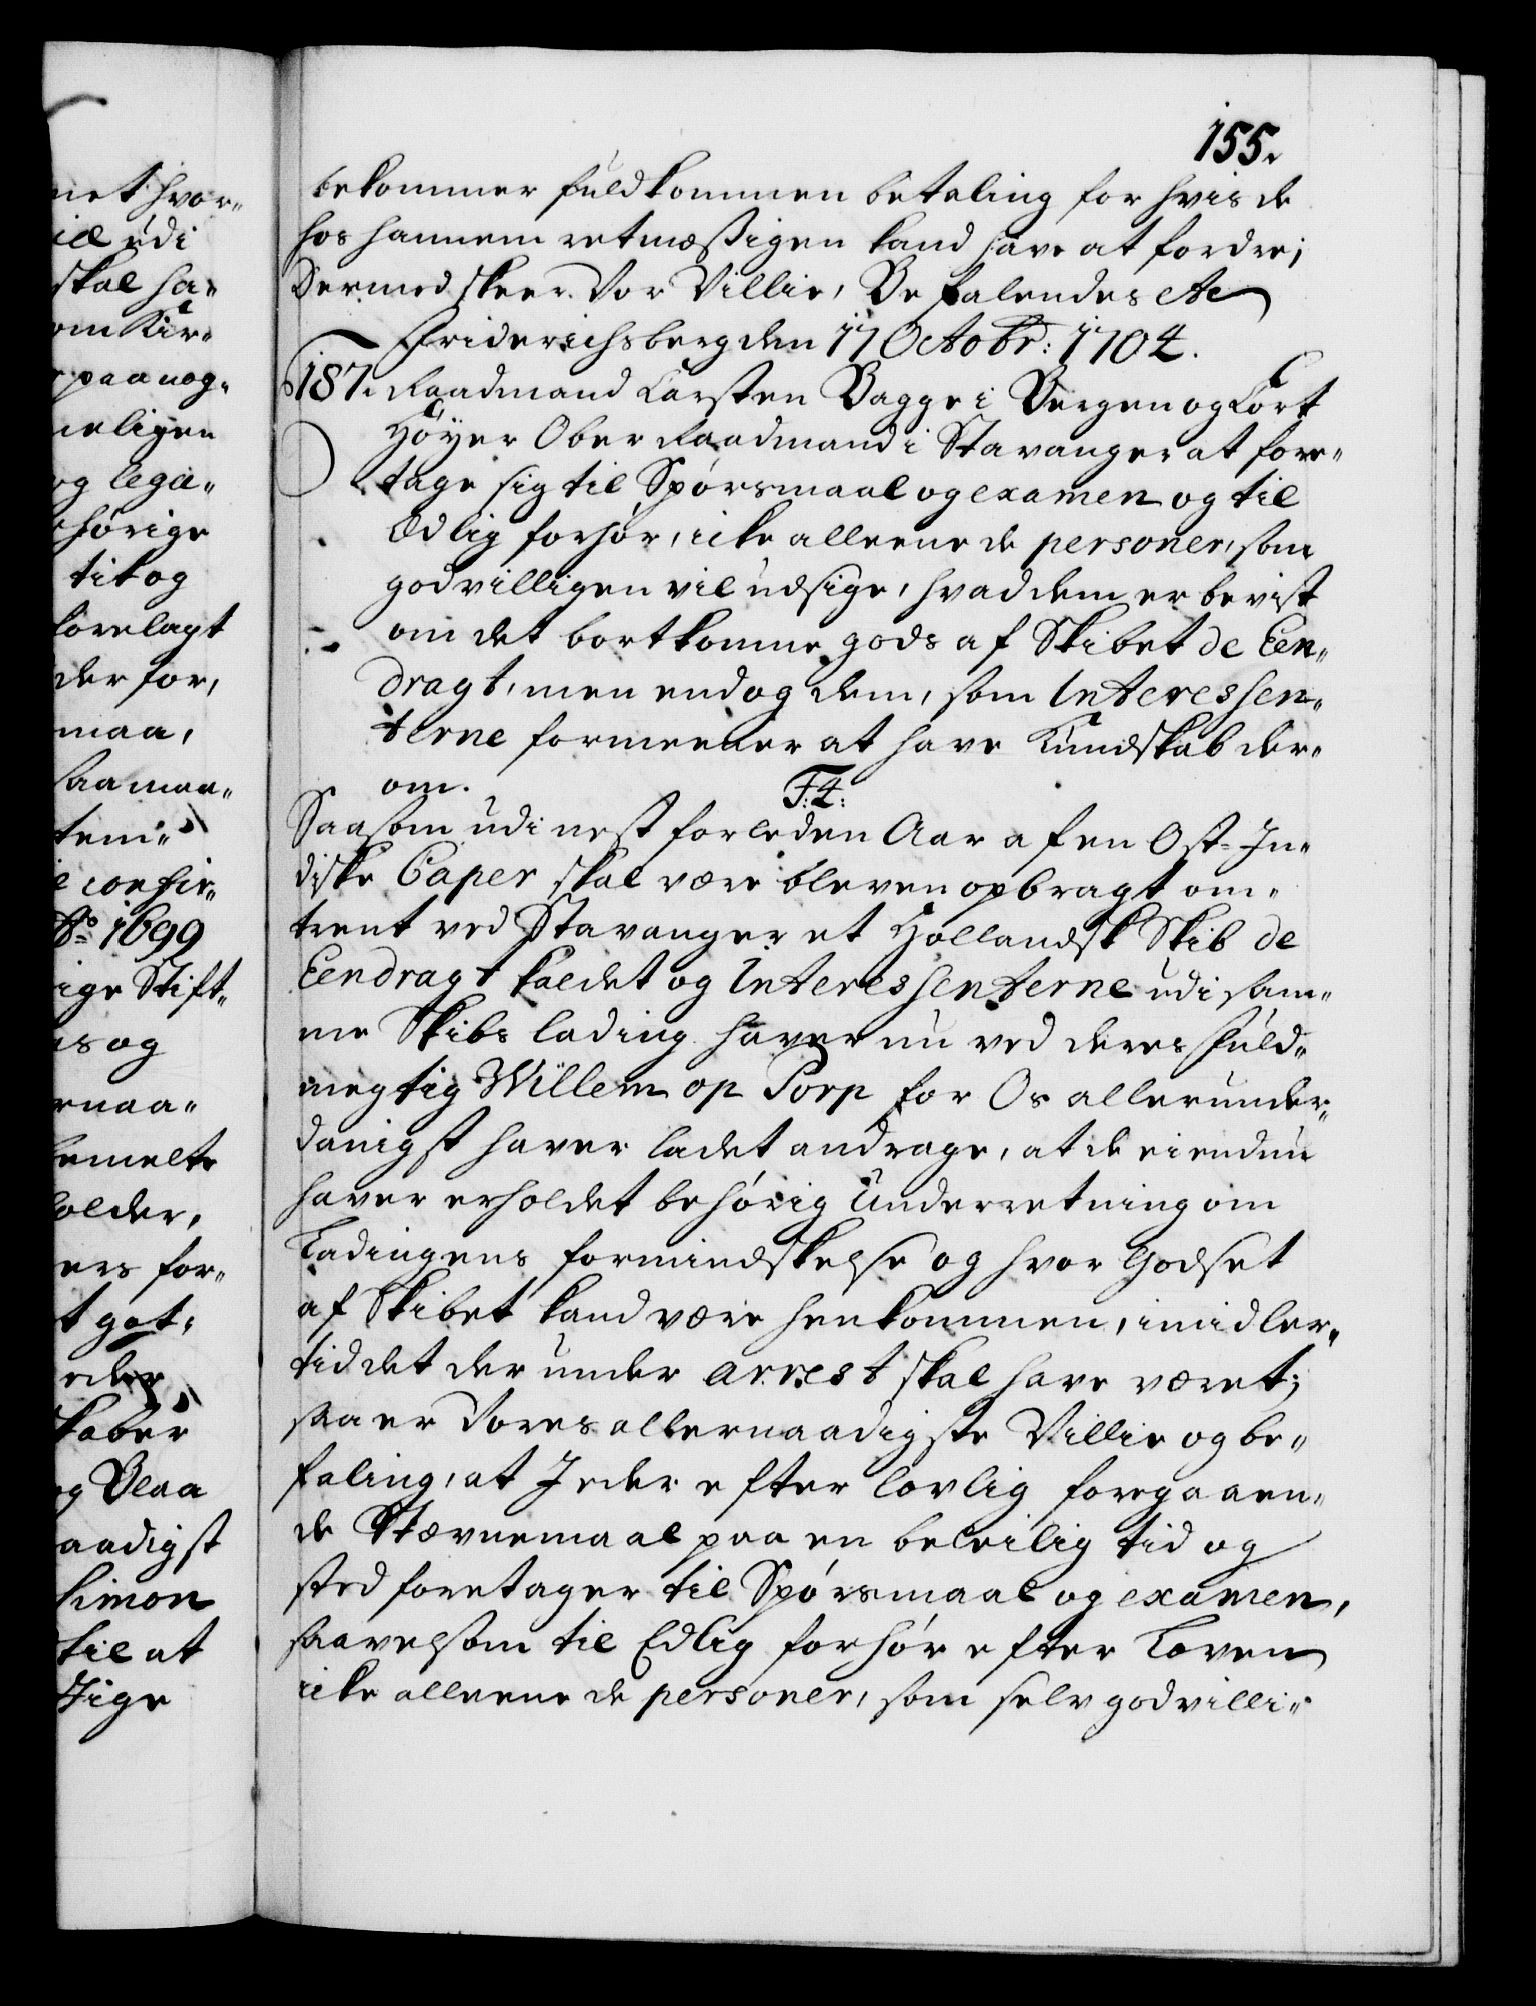 155.
bekommer fuldkommen betaling for hvis de
hos hannem retmæssigen kand have at fordre;
Dermed skeer Vor Villie, Befalendes etc
Friderichsberg den 17 Octobr: 1704.
187. Raadmand Karsten Bagge i Bergen og Cort
Höyer Ober Raadmand i Stavanger at fore„
tage sig til Spörsmaal og examen og til
Edlig forhör, icke alleene de personer, som
godvilligen vil udsige, hvad dem er bevist
om det bortkomne gods af Skibet de Een„
dragt, men endog dem, som Interessen„
terne formeener at have Kundskab der„
om.
F: 4:
Saasom udi nest forleden Aar af en Ost-In„
diske Caper skal være bleven opbragt om„
trent ved Stavanger et Hollandsk Skib de
Eendragt kaldet og Interessenterne udi sam„
me Skibs lading haver nu ved deres fuld„
megtig Willem op Porp for Os allerunder„
danigst haver ladet andrage, at de ei endnu
haver erholdet behörig Underretning om
Ladingens formindskelse og hvor Godset
af Skibet kand være henkommen, imidler„
tid det der under arrest skal have været;
saa er Vores allernaadigste Villie og be„
faling, at I eder efter lovlig foregaaen„
de Stævnemaal paa en beleilig tid og
sted foretager til Spörsmaal og examen,
saavelsom til Edlig forhör efter Loven
icke alleene de personer, som selv godvilli„